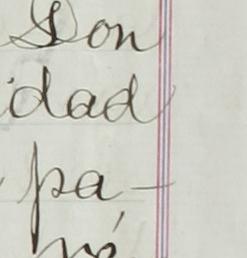 Don
idad
pa-